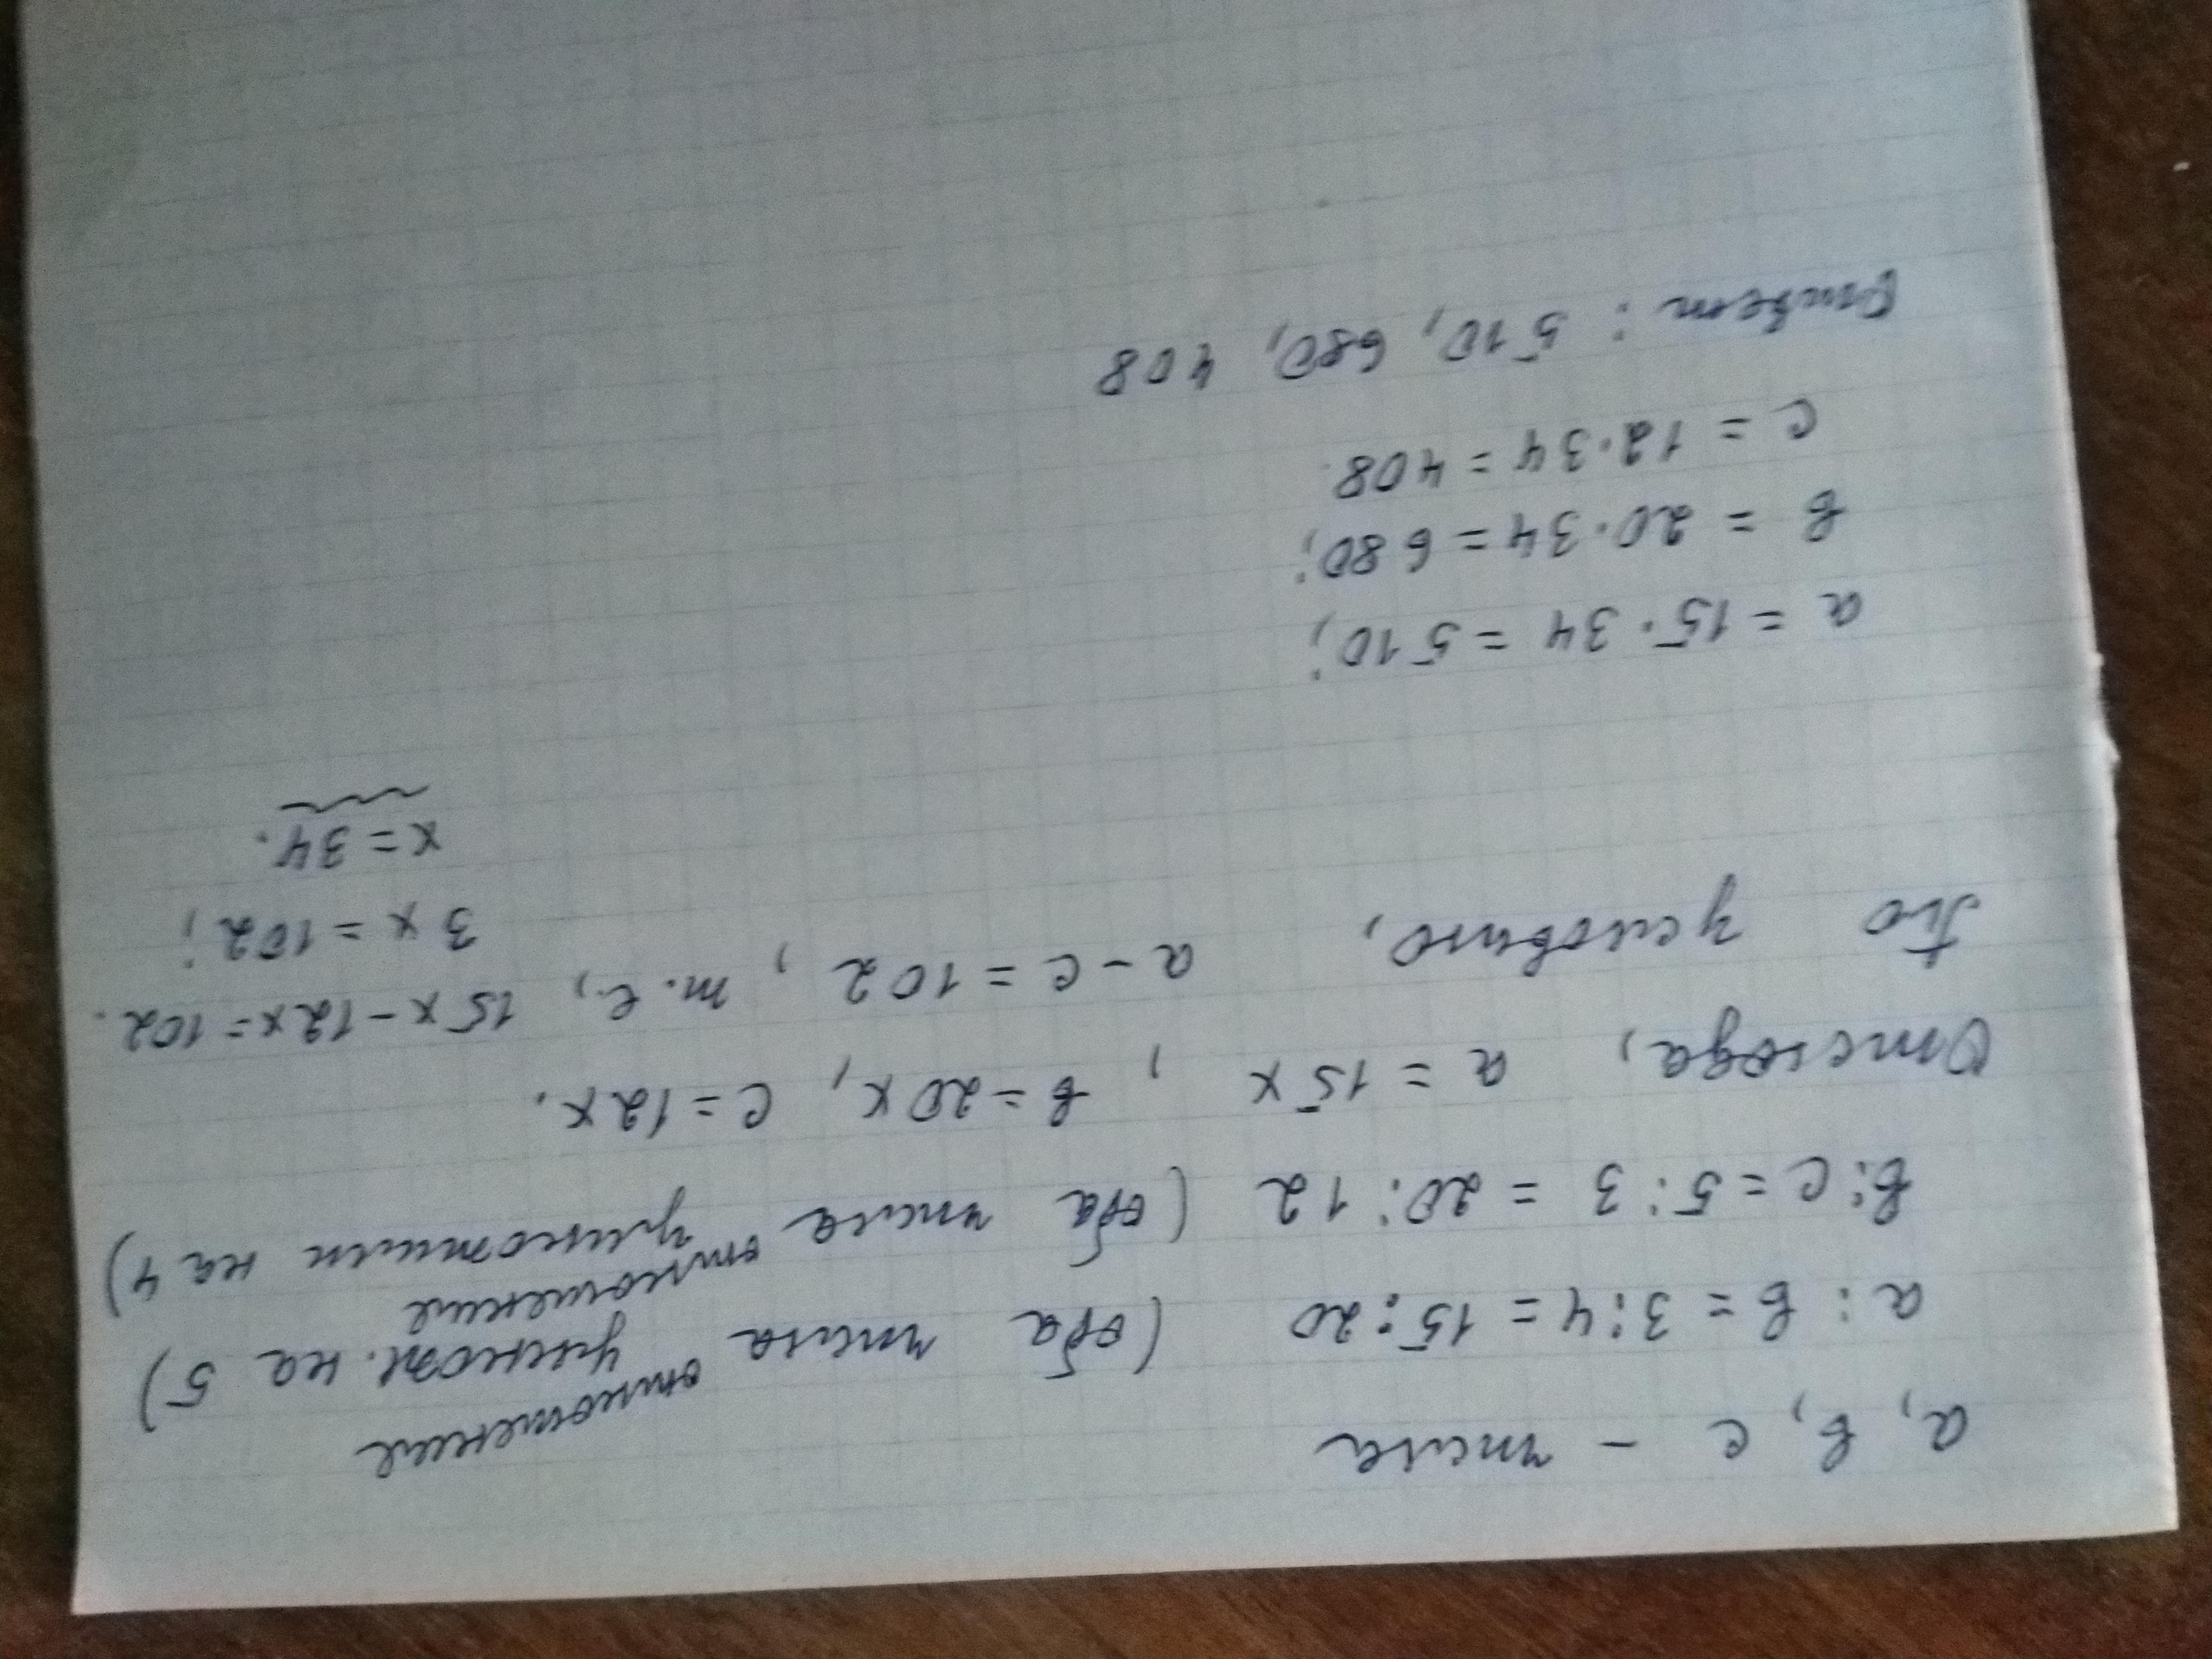 a, b, c - числа
a : b = 3 : 4 = 15 : 20 (оба числа умнож. на 5)
отношение
b : c = 5 : 3 = 20 : 12 (оба числа умножили на 4)
отношение
Отсюда, a = 15x, b = 20x, c = 12x.
По условию, a - c = 102, т. е., 15x - 12x = 102.
3x = 102;
x = 34.
a = 15·34 = 510;
b = 20·34 = 680;
c = 12·34 = 408.
Ответ: 510, 680, 408